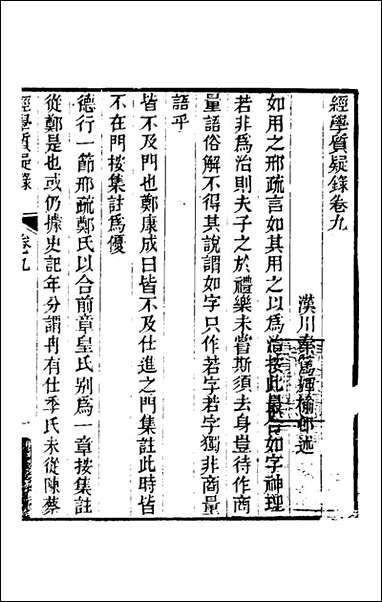 經學質疑錄卷九
漢川秦篤輝榆邨述
如用之邢疏言如其用之以爲治按此最合如字神理
若非爲治則夫子之於禮樂未嘗斯須去身豈待作商
量語俗解不得其說謂如字只作若字若字獨非商量
語乎
皆不及門也鄭康成曰皆不及仕進之門集註此時皆
不在門按集註爲優
德行一節邢疏鄭氏以合前章皇氏别爲一章按集註
從鄭是也或仍據史記年分謂冉有仕季氏未從陳蔡
經學質疑錄
卷九
一